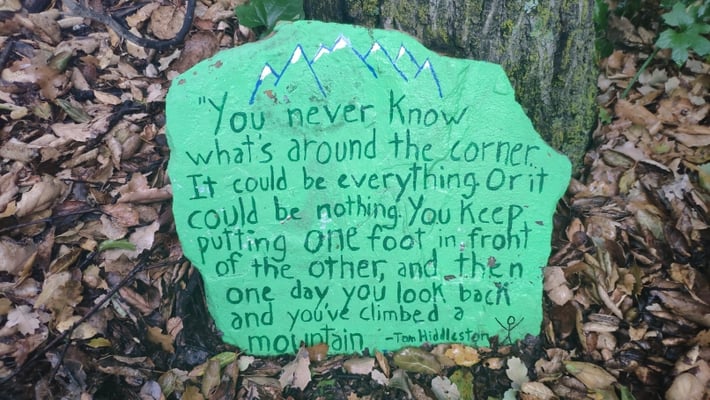 "You never know
what's around the corner.
It could be everything. Or it
could be nothing. You keep
putting one foot in front
of the other, and then
one day you look back
and you've climbed a
mountain. -Tom Hiddleston